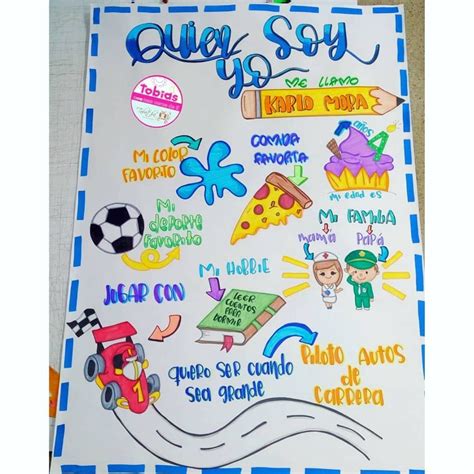 Quien Soy
yo
Tobias
ME LLAMO
KARLO MORA
Mi COLOR
FAVORITO
COMIDA
FAVORITA
años
4
Mi EDAD ES
Mi
deporte
favorito
Mi FAMILIA
mamá
PAPÁ
Mi HOBBIE
LEER
CUENTOS
PARA
DORMIR
JUGAR CON
quiero ser cuando
sea grande
Piloto AUTOS
de
CARRERA
1